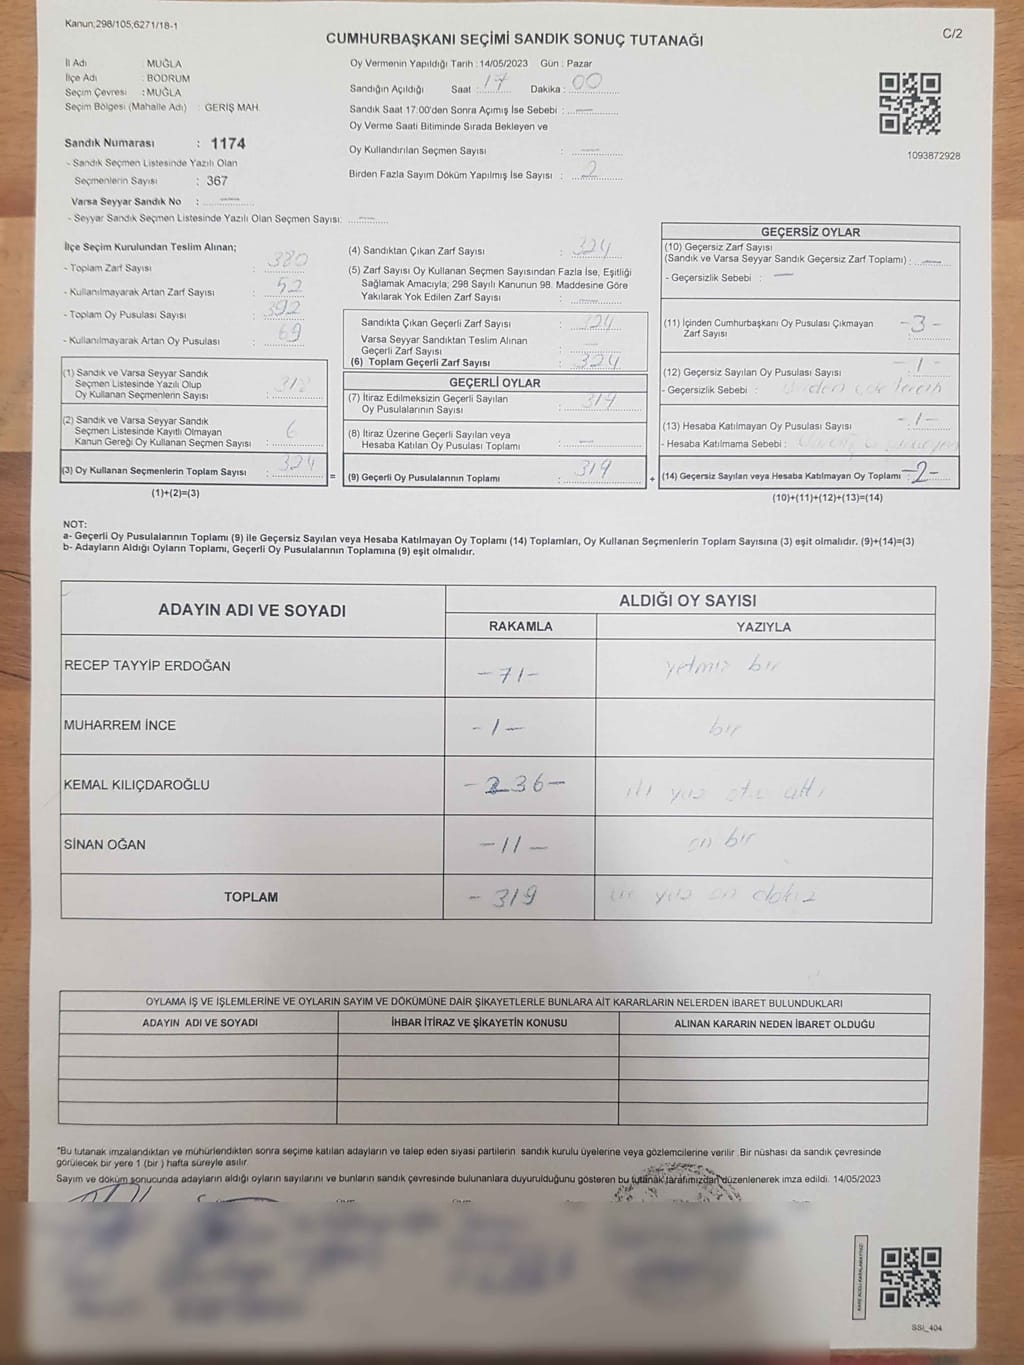 Kanun;298/105,6271/18-1
C/2
CUMHURBAŞKANI SEÇİMİ SANDIK SONUÇ TUTANAĞI
İl Adı : MUĞLA
İlçe Adı : BODRUM
Seçim Çevresi : MUĞLA
Seçim Bölgesi (Mahalle Adı) : GERİŞ MAH.
Sandık Numarası : 1174
- Sandık Seçmen Listesinde Yazılı Olan
Seçmenlerin Sayısı : 367
Varsa Seyyar Sandık No : —
- Seyyar Sandık Seçmen Listesinde Yazılı Olan Seçmen Sayısı: —
Oy Vermenin Yapıldığı Tarih : 14/05/2023 Gün : Pazar
Sandığın Açıldığı Saat : 17 Dakika : 00
Sandık Saat 17:00'den Sonra Açımış İse Sebebi : —
Oy Verme Saati Bitiminde Sırada Bekleyen ve
Oy Kullandırılan Seçmen Sayısı : —
Birden Fazla Sayım Döküm Yapılmış İse Sayısı : 2
1093872928
İlçe Seçim Kurulundan Teslim Alınan;
- Toplam Zarf Sayısı : 380
- Kullanılmayarak Artan Zarf Sayısı : 52
- Toplam Oy Pusulası Sayısı : 392
- Kullanılmayarak Artan Oy Pusulası : 69
(1) Sandık ve Varsa Seyyar Sandık
Seçmen Listesinde Yazılı Olup
Oy Kullanan Seçmenlerin Sayısı :
(2) Sandık ve Varsa Seyyar Sandık
Seçmen Listesinde Kayıtlı Olmayan
Kanun Gereği Oy Kullanan Seçmen Sayısı : 6
(3) Oy Kullanan Seçmenlerin Toplam Sayısı : 324
(1)+(2)=(3)
=
(4) Sandıktan Çıkan Zarf Sayısı : 324
(5) Zarf Sayısı Oy Kullanan Seçmen Sayısından Fazla İse, Eşitliği
Sağlamak Amacıyla; 298 Sayılı Kanunun 98. Maddesine Göre
Yakılarak Yok Edilen Zarf Sayısı : —
Sandıkta Çıkan Geçerli Zarf Sayısı : 324
Varsa Seyyar Sandıktan Teslim Alınan
Geçerli Zarf Sayısı : —
(6) Toplam Geçerli Zarf Sayısı : 324
GEÇERLİ OYLAR
(7) İtiraz Edilmeksizin Geçerli Sayılan
Oy Pusulalarının Sayısı : 319
(8) İtiraz Üzerine Geçerli Sayılan veya
Hesaba Katılan Oy Pusulası Toplamı : —
(9) Geçerli Oy Pusulalarının Toplamı : 319
+
GEÇERSİZ OYLAR
(10) Geçersiz Zarf Sayısı
(Sandık ve Varsa Seyyar Sandık Geçersiz Zarf Toplamı) : —
- Geçersizlik Sebebi : —
(11) İçinden Cumhurbaşkanı Oy Pusulası Çıkmayan
Zarf Sayısı : -3-
(12) Geçersiz Sayılan Oy Pusulası Sayısı : -1-
- Geçersizlik Sebebi : birden çok tercih
(13) Hesaba Katılmayan Oy Pusulası Sayısı : -1-
- Hesaba Katılmama Sebebi :
(14) Geçersiz Sayılan veya Hesaba Katılmayan Oy Toplamı : -2-
(10)+(11)+(12)+(13)=(14)
NOT:
a- Geçerli Oy Pusulalarının Toplamı (9) ile Geçersiz Sayılan veya Hesaba Katılmayan Oy Toplamı (14) Toplamları, Oy Kullanan Seçmenlerin Toplam Sayısına (3) eşit olmalıdır. (9)+(14)=(3)
b- Adayların Aldığı Oyların Toplamı, Geçerli Oy Pusulalarının Toplamına (9) eşit olmalıdır.
ADAYIN ADI VE SOYADI
ALDIĞI OY SAYISI
RAKAMLA YAZIYLA
RECEP TAYYİP ERDOĞAN -71- yetmiş bir
MUHARREM İNCE -1- bir
KEMAL KILIÇDAROĞLU -236- iki yüz otuz altı
SİNAN OĞAN -11- on bir
TOPLAM - 319 üç yüz on dokuz
OYLAMA İŞ VE İŞLEMLERİNE VE OYLARIN SAYIM VE DÖKÜMÜNE DAİR ŞİKAYETLERLE BUNLARA AİT KARARLARIN NELERDEN İBARET BULUNDUKLARI
ADAYIN ADI VE SOYADI İHBAR İTİRAZ VE ŞİKAYETİN KONUSU ALINAN KARARIN NEDEN İBARET OLDUĞU
*Bu tutanak imzalandıktan ve mühürlendikten sonra seçime katılan adayların ve talep eden siyasi partilerin sandık kurulu üyelerine veya gözlemcilerine verilir .Bir nüshası da sandık çevresinde
görülecek bir yere 1 (bir ) hafta süreyle asılır.
Sayım ve döküm sonucunda adayların aldığı oyların sayılarını ve bunların sandık çevresinde bulunanlara duyurulduğunu gösteren bu tutanak tarafımızdan düzenlenerek imza edildi. 14/05/2023
KARE KODU KARALAMAYINIZ!
SSI_404